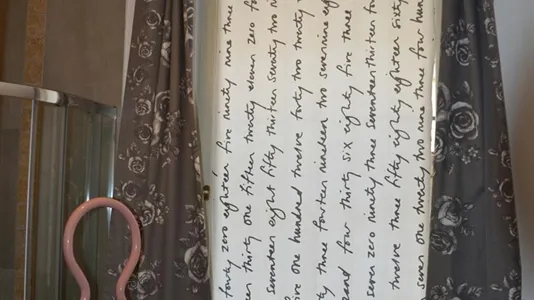 forty zero eighteen five ninety nine three
en thirty one fifteen twenty eleven zero fo
seventeen eight fifty thirteen seventy two
ive one hundred twelve forty two twenty
ty three fourteen nineteen two seven nine
and four thirty six eighty five three
seven zero ninety three seventeen thirteen fo
twelve three fifty eighty eighteen sixty
seven one twenty two nine three four hun